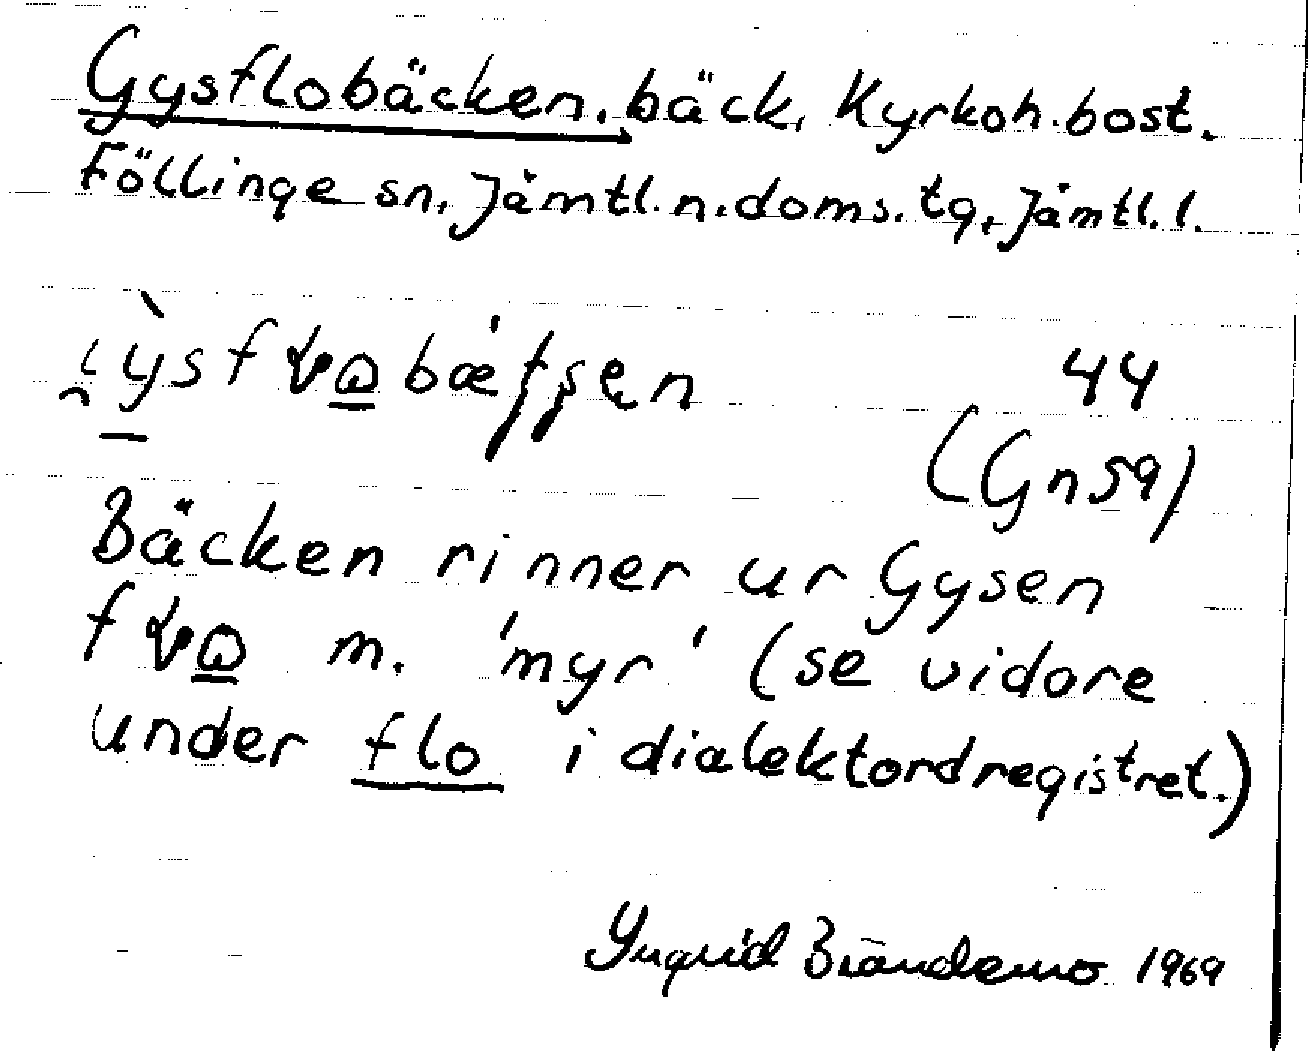 Gysflobäcken. bäck, Kyrkoh.bost.
Föllinge sn, Jämtl. n. doms. tg, Jämtl. l.
44
(Gn59)
Bäcken rinner ur Gysen
m. 'myr' (se vidare
under flo i dialektordregistret.)
Yngrid Brändemo 1969